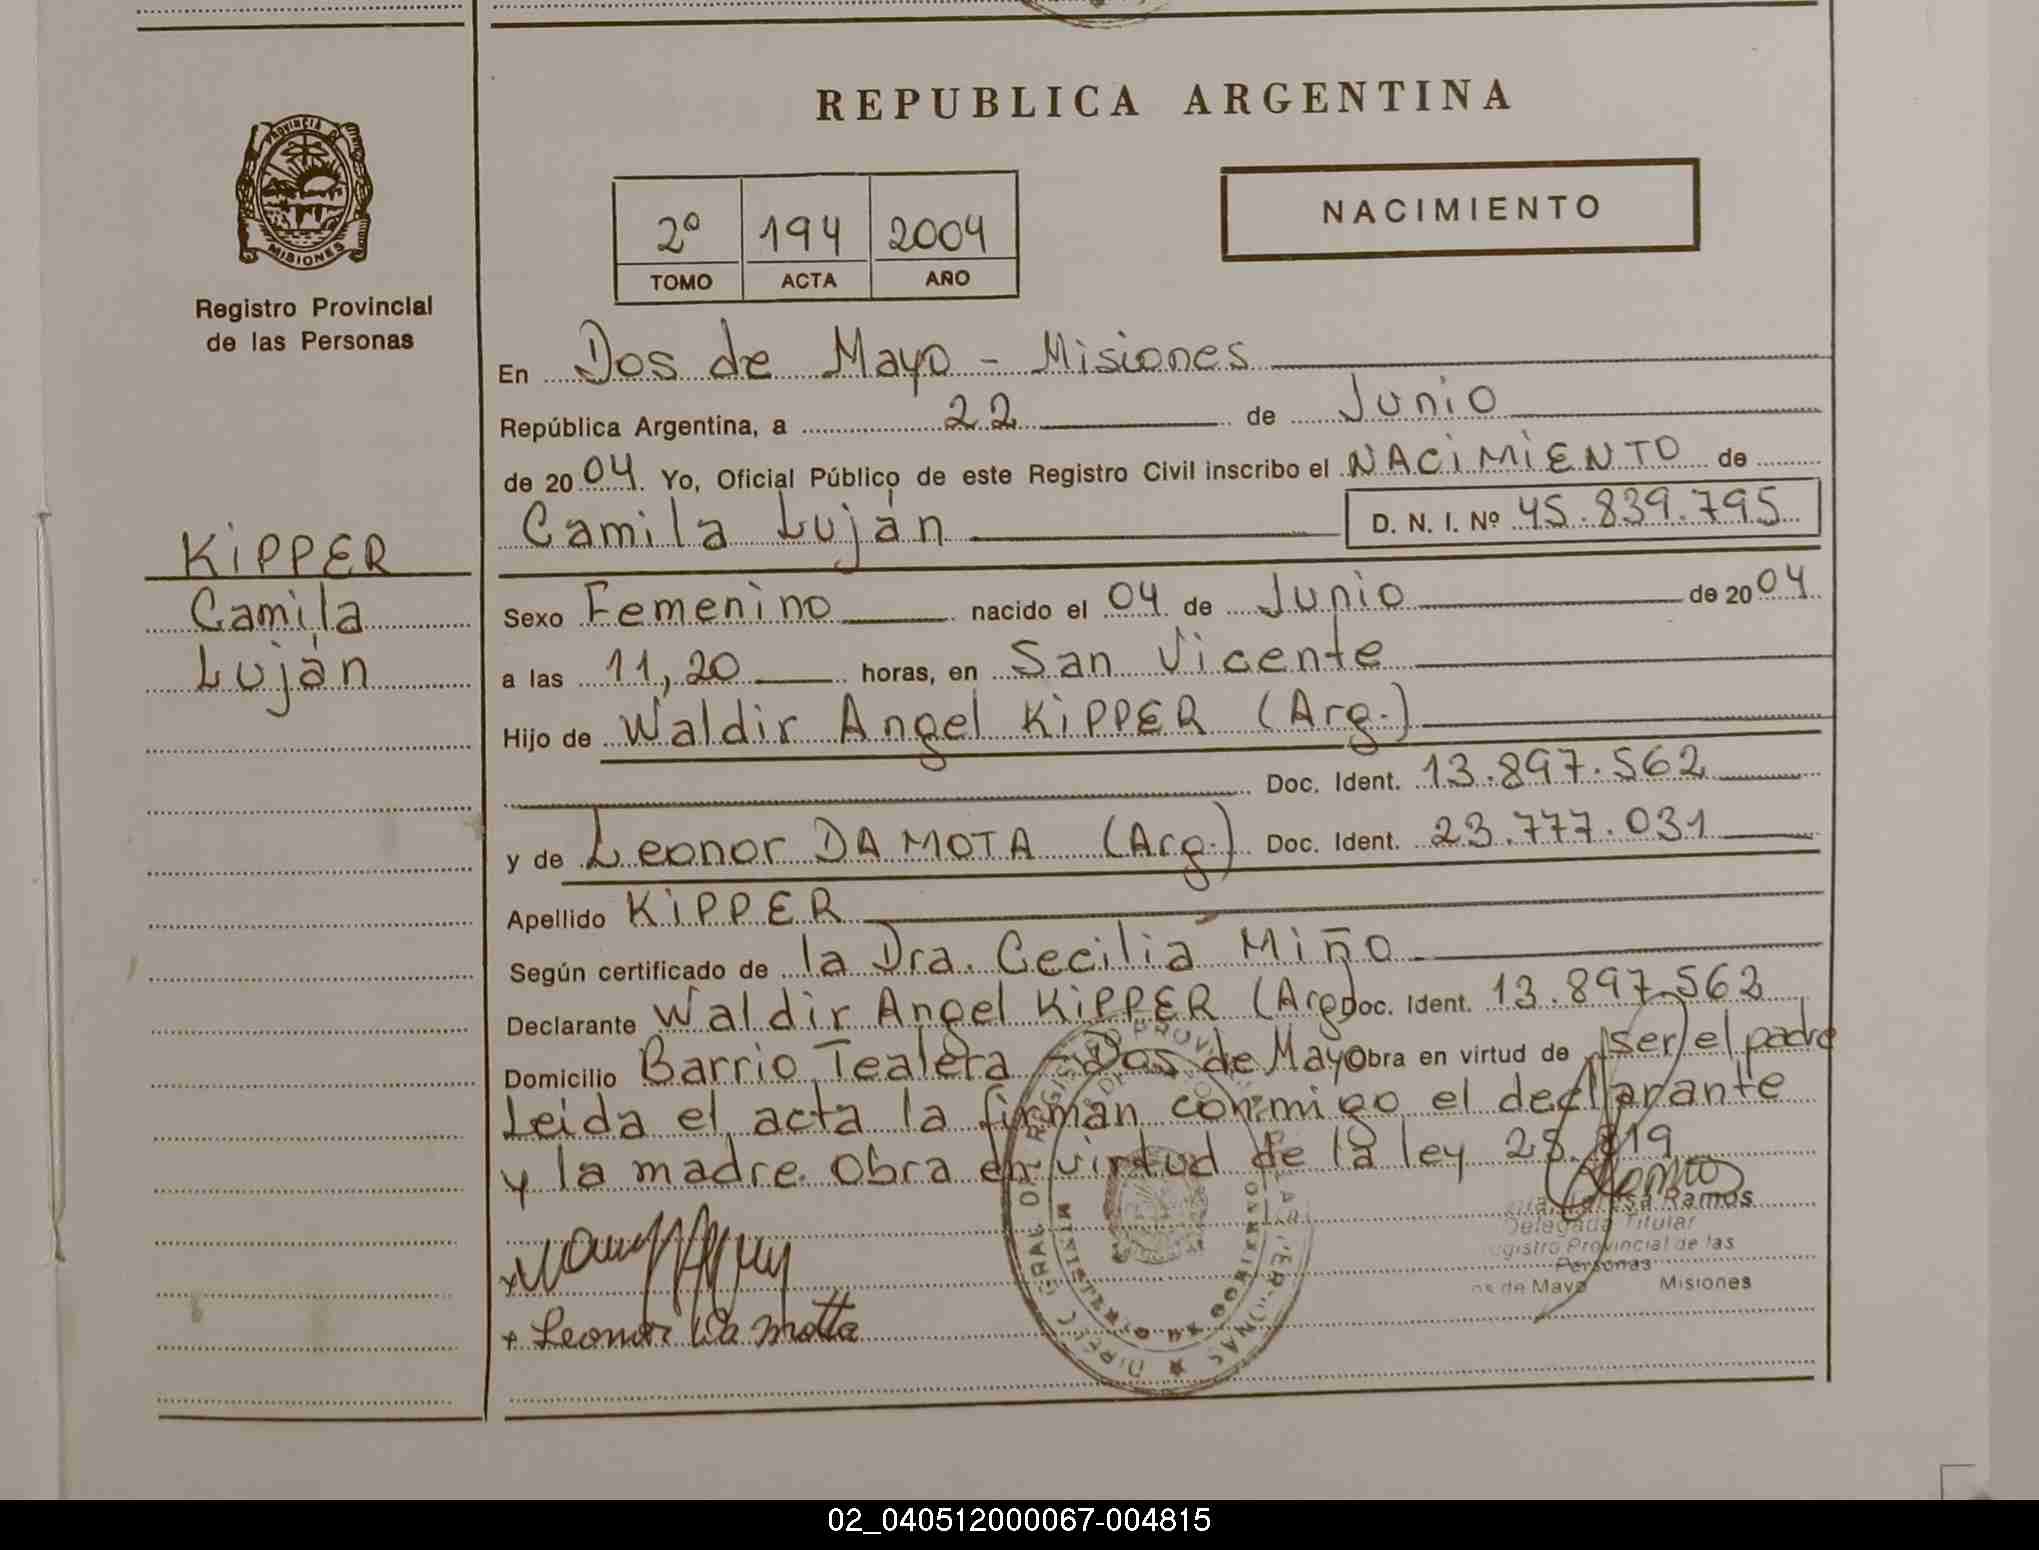 REPUBLICA ARGENTINA
PROVINCIA DE MISIONES
Registro Provincial
de las Personas
2º 194 2004
TOMO ACTA AÑO
NACIMIENTO
En Dos de Mayo - Misiones
República Argentina, a 22 de Junio
de 2004 Yo, Oficial Público de este Registro Civil inscribo el NACIMIENTO de
Camila Luján D. N. I. Nº 45.839.795
KIPPER
Camila
Luján
Sexo Femenino nacido el 04 de Junio de 2004
a las 11,20 horas, en San Vicente
Hijo de Waldir Angel KIPPER (Arg.)
Doc. Ident. 13.897.562
y de Leonor DA MOTA (Arg.) Doc. Ident. 23.777.031
Apellido KIPPER
Según certificado de la Dra. Cecilia Miño
Declarante Waldir Angel KIPPER (Arg Doc. Ident. 13.897.562
Domicilio Barrio Tealera - Dos de Mayo Obra en virtud de ser el padre
Leida el acta la firman conmigo el declarante
y la madre. Obra en virtud de la ley 25.819
Ramos
Delegada Titular
Registro Provincial de las
Personas
Dos de Mayo Misiones
+ Leonor Da Motta
02_040512000067-004815